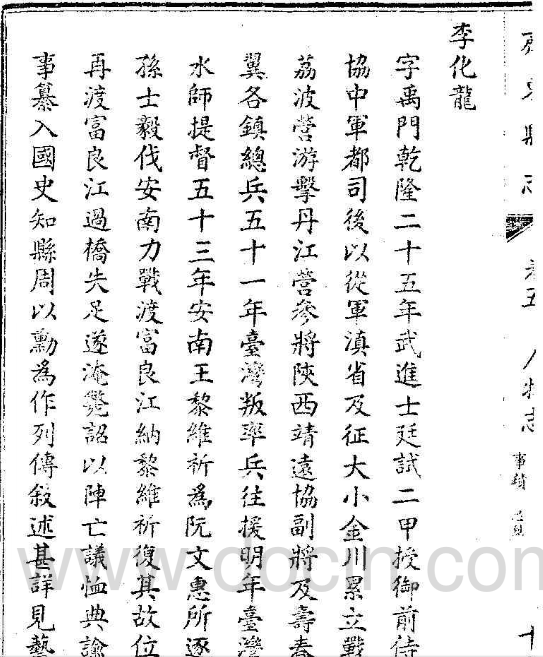 卷五 人物志 事蹟
李化龍
字禹門乾隆二十五年武進士廷試二甲授御前侍
協中軍都司後以從軍滇省及征大小金川累立戰
荔波營游擊丹江營參將陝西靖遠協副將及壽春
翼各鎮總兵五十一年臺灣叛率兵往援明年臺灣
水師提督五十三年安南王黎維祈為阮文惠所逐
孫士毅伐安南力戰渡富良江納黎維祈復其故位
再渡富良江過橋失足遂淹斃詔以陣亡議恤典諭
事纂入國史知縣周以勳為作列傳敘述甚詳見藝